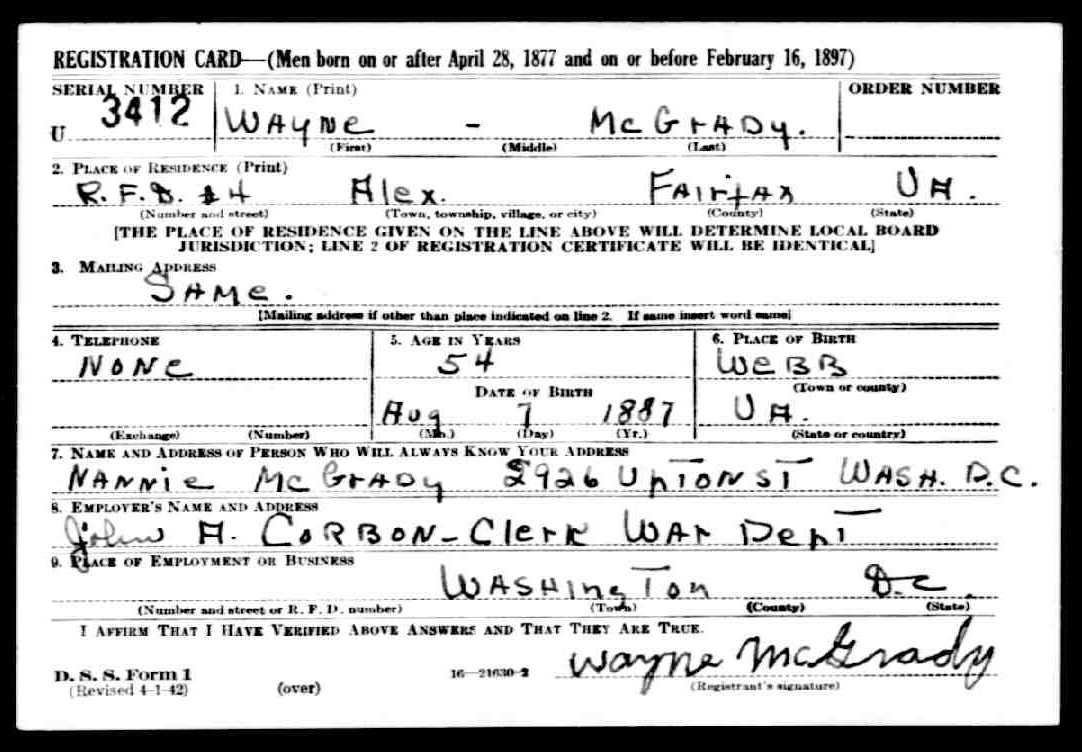 REGISTRATION CARD—(Men born on or after April 28, 1877 and on or before February 16, 1897)
SERIAL NUMBER 1. NAME (Print) ORDER NUMBER
U 3412 WAYNe - McGrADy.
(First) (Middle) (Last)
2. PLACE OF RESIDENCE (Print)
R.F.D. #4 Alex. FAirfax VA.
(Number and street) (Town, township, village, or city) (County) (State)
[THE PLACE OF RESIDENCE GIVEN ON THE LINE ABOVE WILL DETERMINE LOCAL BOARD
JURISDICTION; LINE 2 OF REGISTRATION CERTIFICATE WILL BE IDENTICAL]
3. MAILING ADDRESS
SAMe.
[Mailing address if other than place indicated on line 2. If same insert word same]
4. TELEPHONE 5. AGE IN YEARS 6. PLACE OF BIRTH
NoNe 54 WeBB
DATE OF BIRTH (Town or county)
Aug 7 1887 VA.
(Exchange) (Number) (Mo.) (Day) (Yr.) (State or country)
7. NAME AND ADDRESS OF PERSON WHO WILL ALWAYS KNOW YOUR ADDRESS
NANNie McGrADy 2926 UpToN ST WASH. D.C.
8. EMPLOYER'S NAME AND ADDRESS
John A. CoRBoN-Clerk WAr DepT
9. PLACE OF EMPLOYMENT OR BUSINESS
WASHingTon D.C.
(Number and street or R. F. D. number) (Town) (County) (State)
I AFFIRM THAT I HAVE VERIFIED ABOVE ANSWERS AND THAT THEY ARE TRUE.
D. S. S. Form 1 16—21630-2 Wayne McGrady
(Revised 4-1-42) (over) (Registrant's signature)